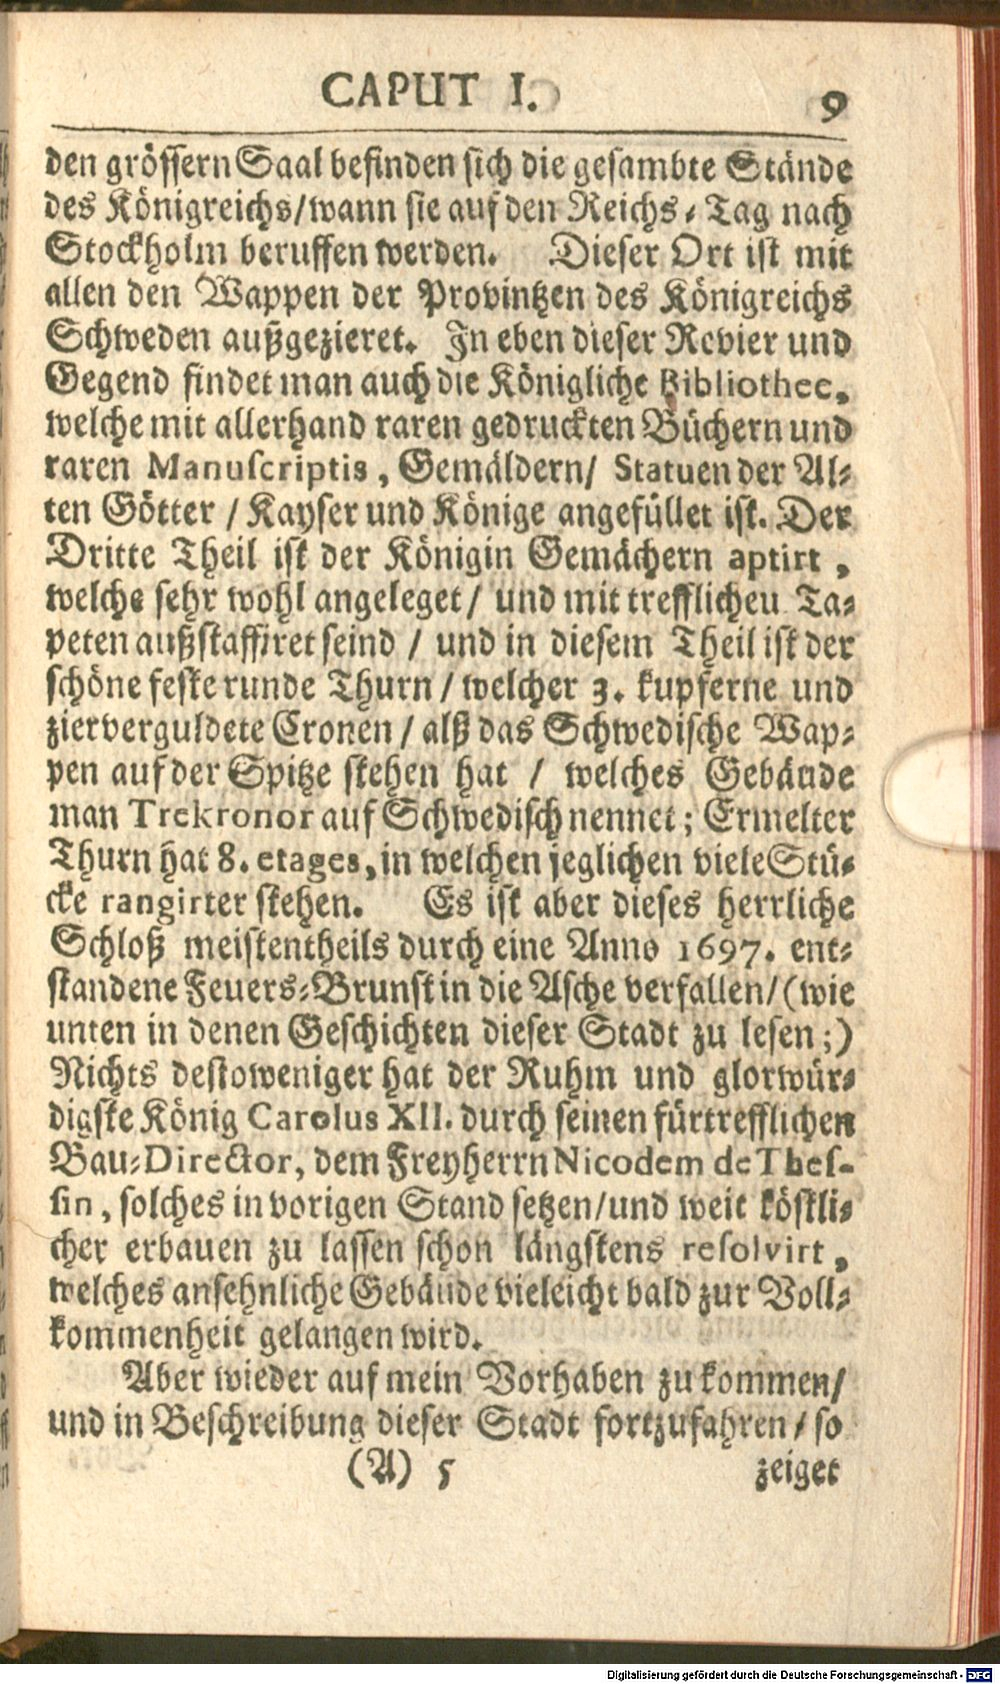 CAPUT I. 9
den grössern Saal befinden sich die gesambte Stände
des Königreichs/wann sie auf den Reichs-Tag nach
Stockholm beruffen werden. Dieser Ort ist mit
allen den Wappen der Provintzen des Königreichs
Schweden außgezieret. In eben dieser Revier und
Gegend findet man auch die Königliche Bibliothec,
welche mit allerhand raren gedruckten Büchern und
raren Manuscriptis, Gemäldern/ Statuen der Al-
ten Götter / Kayser und Könige angefüllet ist. Der
Dritte Theil ist der Königin Gemächern aptirt,
welche sehr wohl angeleget/ und mit trefflicheu Ta-
peten außstaffiret seind / und in diesem Theil ist der
schöne feste runde Thurn / welcher 3. kupferne und
zierverguldete Cronen / alß das Schwedische Wap-
pen auf der Spitze stehen hat / welches Gebäude
man Trekronor auf Schwedisch nennet; Ermelter
Thurn hat 8. etages, in welchen jeglichen viele Stü-
cke rangirter stehen. Es ist aber dieses herrliche
Schloß meistentheils durch eine Anno 1697. ent-
standene Feuers-Brunst in die Asche verfallen/(wie
unten in denen Geschichten dieser Stadt zu lesen;)
Nichts destoweniger hat der Ruhm und glorwür-
digste König Carolus XII. durch seinen fürtrefflichen
Bau-Director, dem Freyherrn Nicodem de Thes-
sin, solches in vorigen Stand setzen/und weit köstli-
cher erbauen zu lassen schon längstens resolvirt,
welches ansehnliche Gebäude vieleicht bald zur Voll-
kommenheit gelangen wird.
Aber wieder auf mein Vorhaben zu kommen/
und in Beschreibung dieser Stadt fortzufahren / so
(A) 5 zeiget
Digitalisierung gefördert durch die Deutsche Forschungsgemeinschaft - DFG